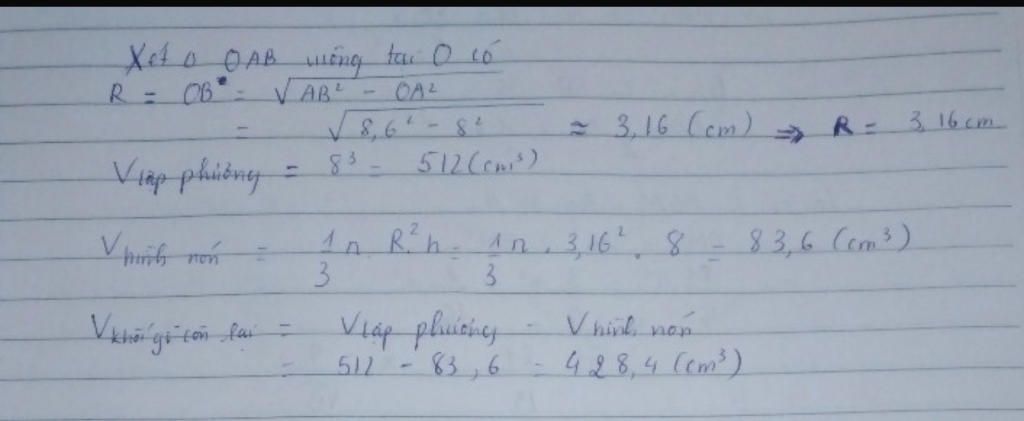 Xét Δ OAB vuông tại O có
R = OB = √AB² - OA²
= √8,6² - 8² ≈ 3,16 (cm) ⇒ R = 3,16 cm
V lập phương = 8³ = 512 (cm³)
V hình nón = 1/3 π R².h = 1/3 π . 3,16² . 8 = 83,6 (cm³)
V khối gỗ còn lại = V lập phương - V hình nón
= 512 - 83,6 = 428,4 (cm³)